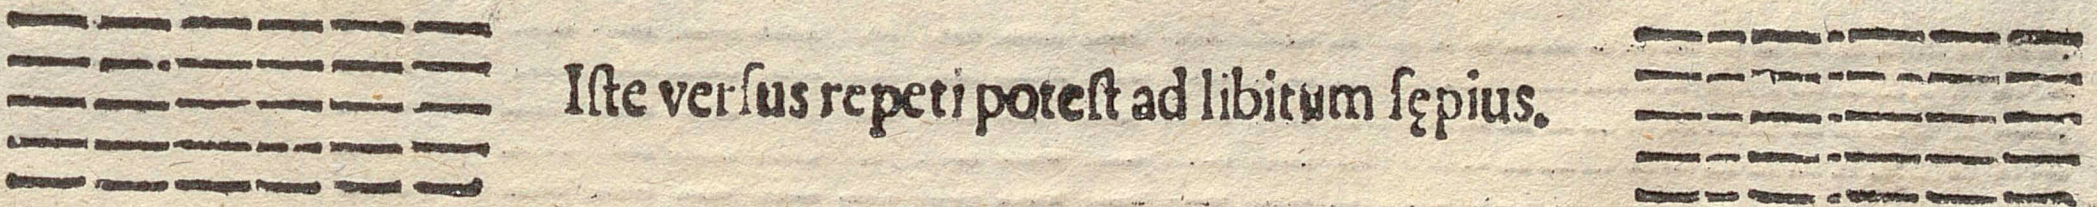 Iſte verſus repeti poteſt ad libitum ſępius.